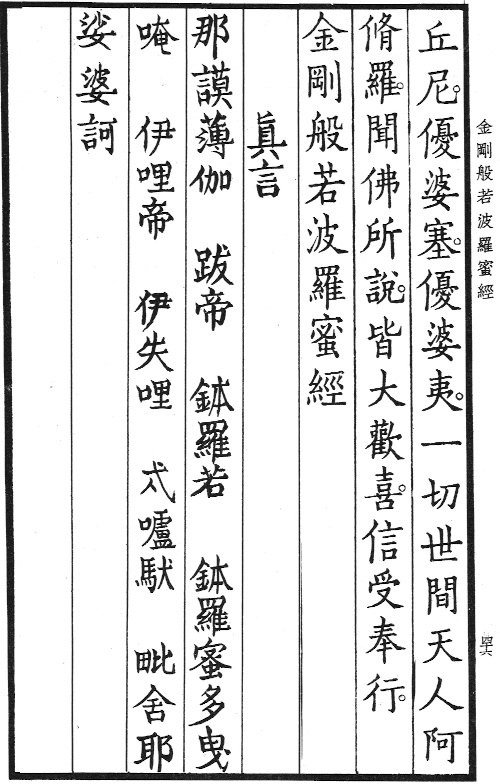 金剛般若波羅蜜經
丘尼。優婆塞。優婆夷。一切世間天人阿
脩羅。聞佛所說。皆大歡喜。信受奉行。
金剛般若波羅蜜經
眞言
那謨薄伽 跋帝 鉢羅若 鉢羅蜜多曳
唵 伊哩帝 伊失哩 式嚧馱 毗舍耶
娑婆訶